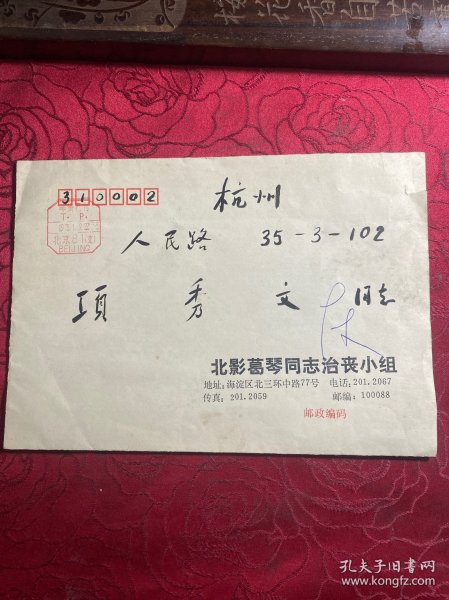 310002
杭州
T. P.
北京
BEIJING
人民路 35-3-102
项秀文 同志
北影葛琴同志治丧小组
地址:海淀区北三环中路77号 电话:201.2067
传真:201.2059 邮编:100088
邮政编码
孔夫子旧书网
www.kongfz.com